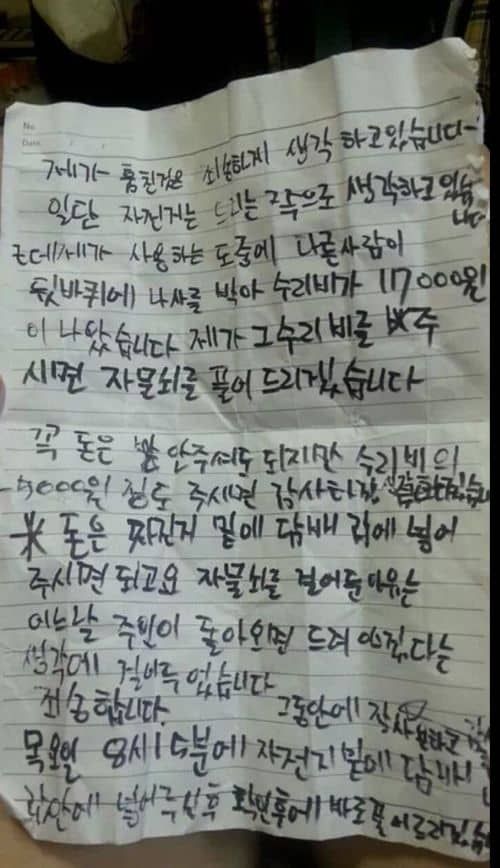 No.
Date.
제가 훔친것은 죄송하게 생각 하고있습니다
일단 자전거는 드리는 쪽으로 생각하고 있습
니다
근데 제가 사용하는 도중에 나쁜사람이
뒷바퀴에 나사를 박아 수리비가 17000원
이 나왔습니다 제가 그수리 비를 주
시면 자물쇠를 풀어 드리겠습니다
꼭 돈은 안주셔도 되지만 수리비의
5000원 정도 주시면 감사하장
※ 돈은 짜전거 밑에 담배 곽에 넣어
주시면 되고요 자물쇠를 걸어둔 이유는
어느날 주인이 돌아오면 드려야겠다는
생각에 걸어두었습니다
죄송합니다. 그동안에 잘
목요일 8시15분에 자전거 밑에 담배
곽안에 넣어주신후 확인후에 바로풀어드리겠습